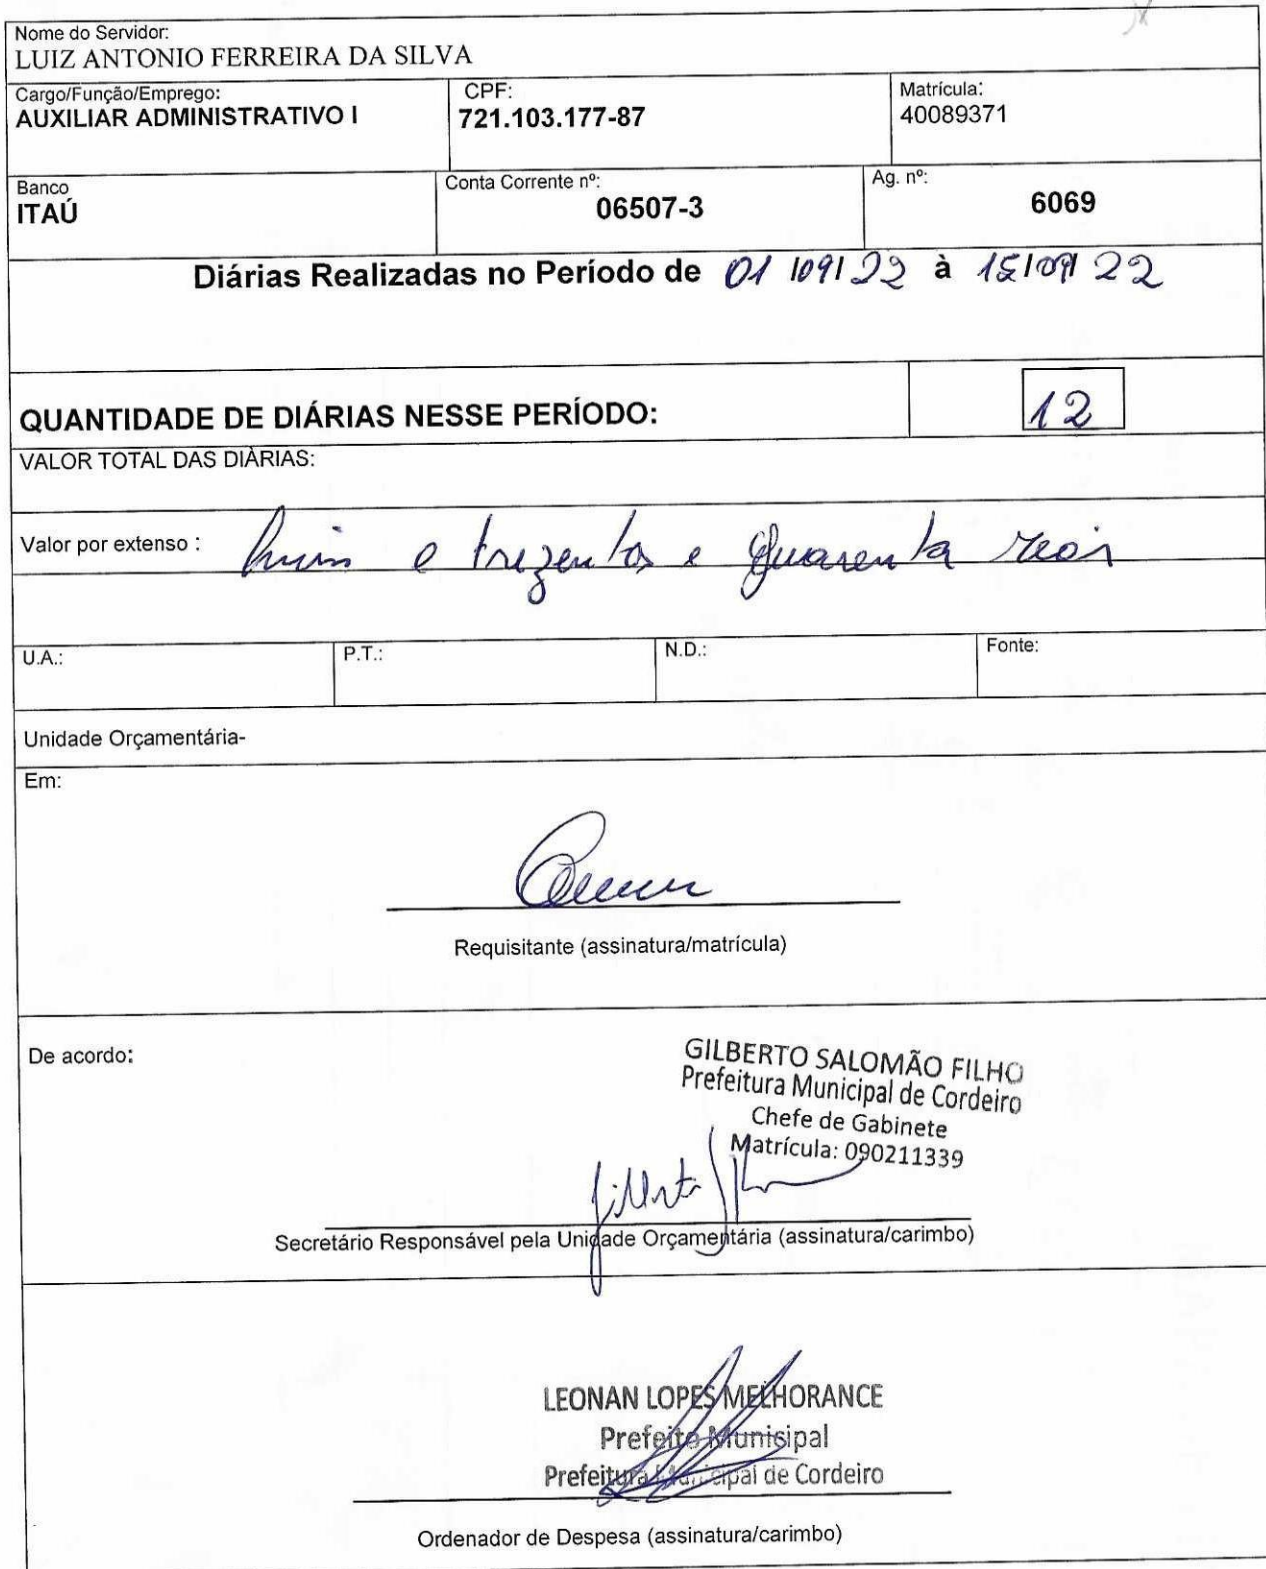 Nome do Servidor:
LUIZ ANTONIO FERREIRA DA SILVA
Cargo/Função/Emprego:
AUXILIAR ADMINISTRATIVO I
CPF:
721.103.177-87
Matrícula:
40089371
Banco
ITAÚ
Conta Corrente nº:
06507-3
Ag. nº:
6069
Diárias Realizadas no Período de 01/09/22 à 15/09/22
QUANTIDADE DE DIÁRIAS NESSE PERÍODO: 12
VALOR TOTAL DAS DIÀRIAS:
Valor por extenso : hum e trezentos e quarenta reais
U.A.:
P.T.:
N.D.:
Fonte:
Unidade Orçamentária-
Em:
Requisitante (assinatura/matrícula)
De acordo:
GILBERTO SALOMÃO FILHO
Prefeitura Municipal de Cordeiro
Chefe de Gabinete
Matrícula: 090211339
Secretário Responsável pela Unidade Orçamentária (assinatura/carimbo)
LEONAN LOPES MELHORANCE
Prefeito Munisipal
Prefeitura Municipal de Cordeiro
Ordenador de Despesa (assinatura/carimbo)